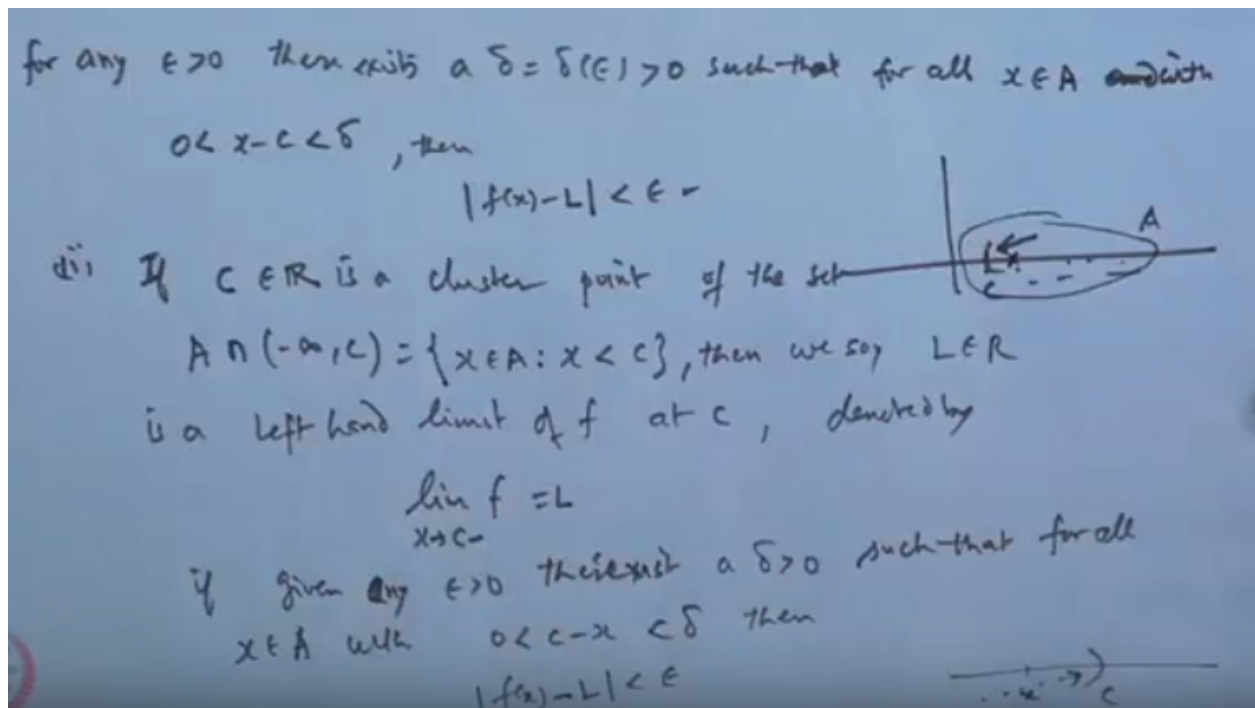 for any ε>0 there exists a δ = δ(ε) > 0 such that for all x ∈ A with
0 < x-c < δ , then
|f(x)-L| < ε
A
(ii) If C ∈ R is a cluster point of the set
c
A ∩ (-∞, c) = {x ∈ A : x < c}, then we say L ∈ R
is a left hand limit of f at c , denoted by
lim f = L
x→c-
if given any ε>0 there exist a δ>0 such that for all
x ∈ A with 0 < c-x < δ then
|f(x)-L| < ε
x
c